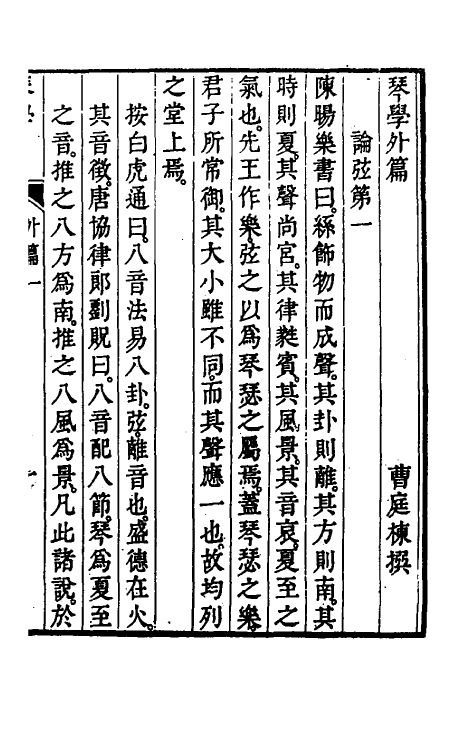 琴學外篇
曹庭棟撰
論弦第一
陳暘樂書曰。絲飾物而成聲。其卦則離。其方則南。其
時則夏。其聲尚宮。其律蕤賓。其風景。其音哀。夏至之
氣也。先王作樂。弦之以爲琴瑟之屬焉。蓋琴瑟之樂。
君子所常御。其大小雖不同。而其聲應一也。故均列
之堂上焉。
按白虎通曰。八音法易八卦。弦。離音也。盛德在火。
其音徵。唐協律郎劉貺曰。八音配八節。琴爲夏至
之音。推之八方爲南。推之八風爲景。凡此諸說。於
外篇 一